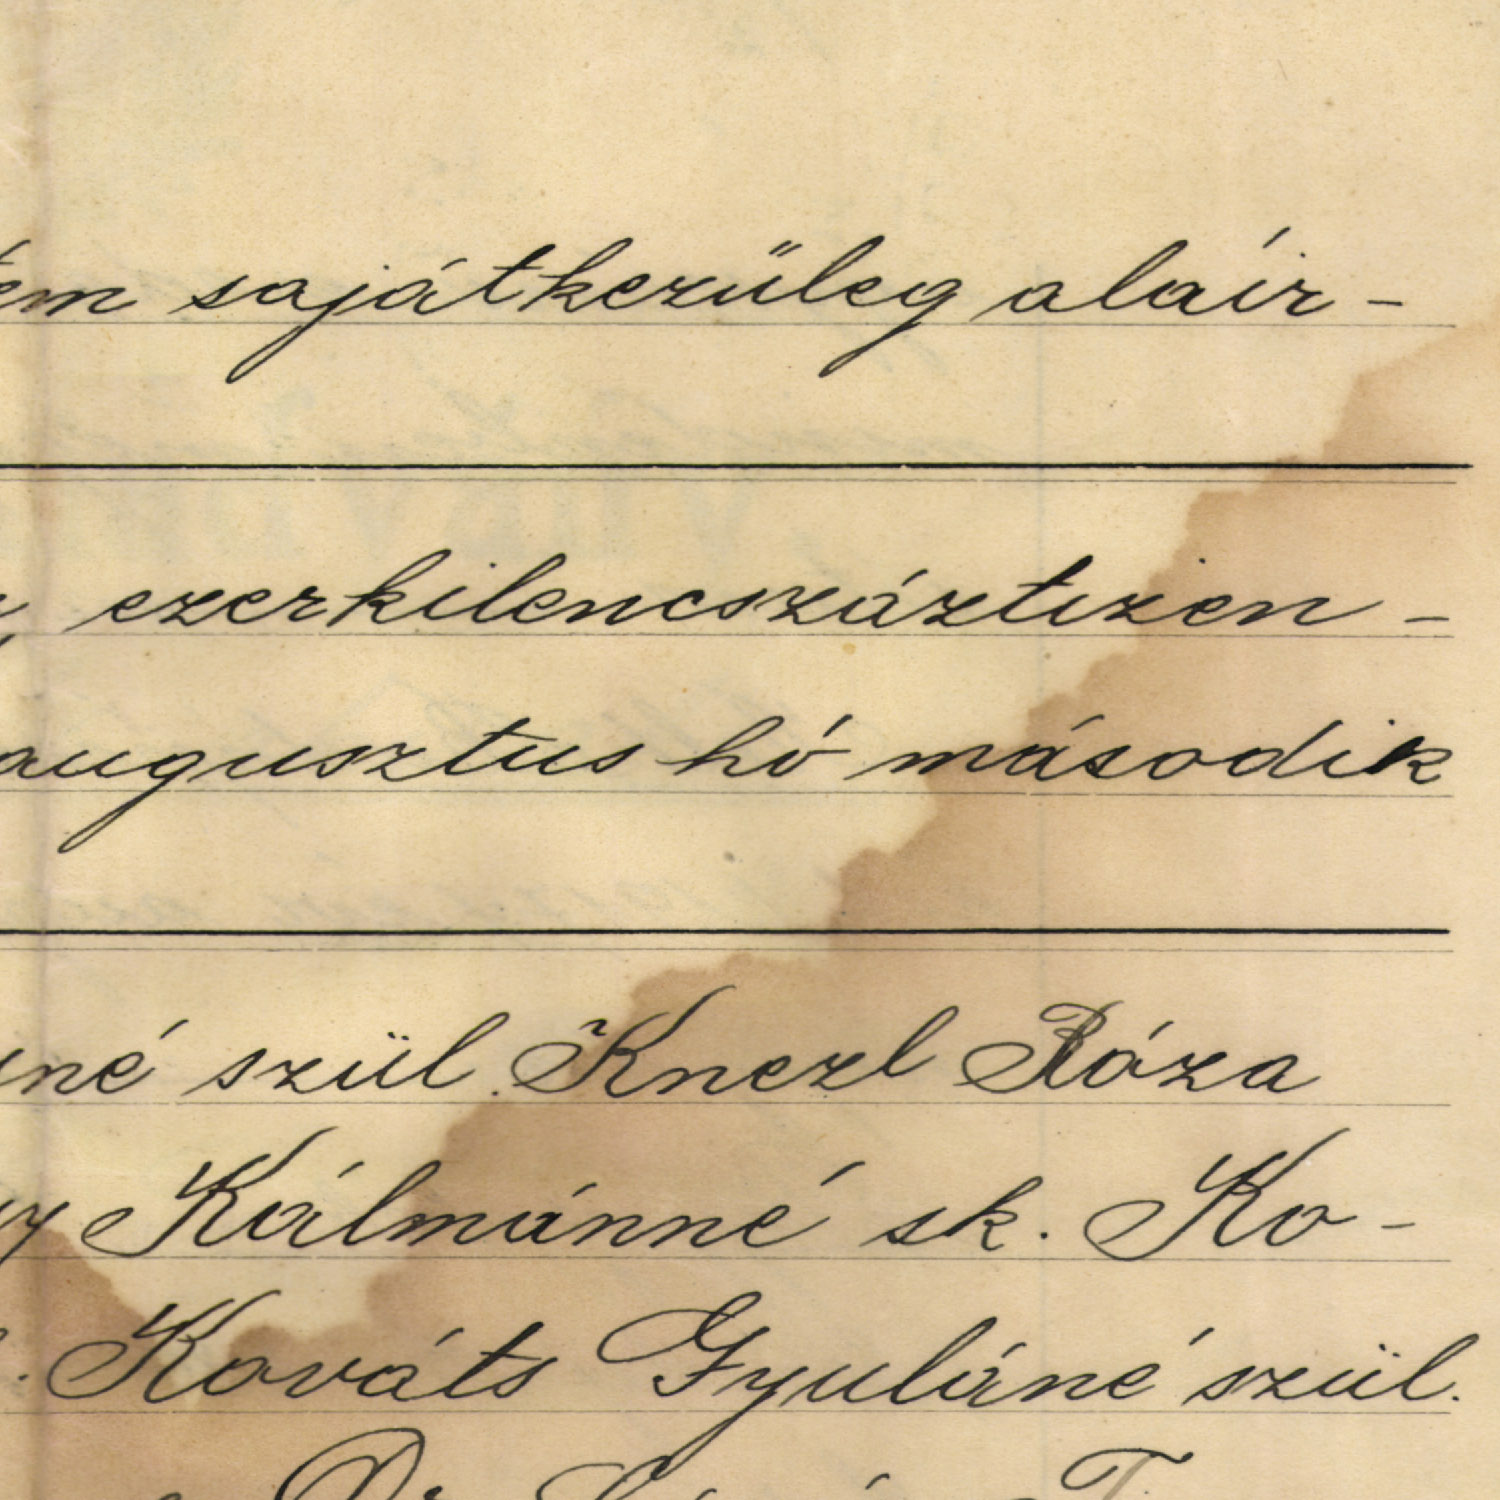 sajátkezűleg aláir-
ezerkilencszáztizen-
augusztus hó második
szül. Knezl Róza
Kálmánné sk. Ko-
Kováts Gyuláné szül.
Dr.